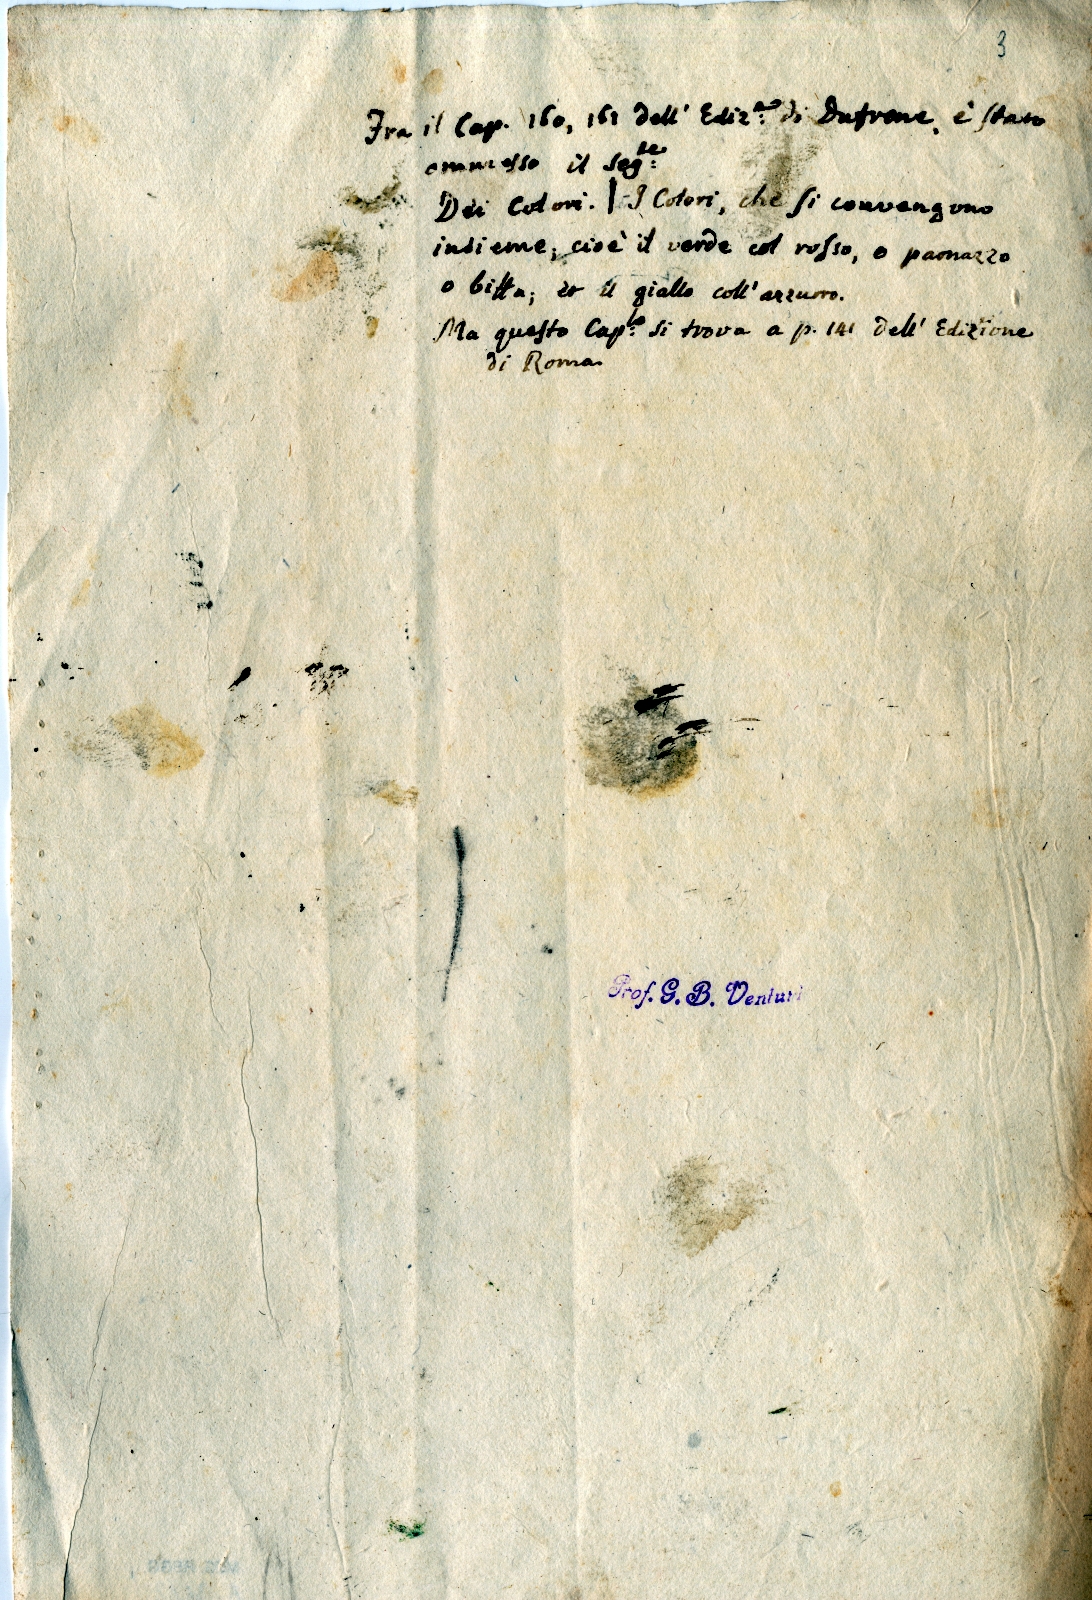 3
Fra il Cap. 160, 161 dell' Ediz.ne di Dufrane, è stato
ommesso il seg.te
Dei Colori. | I Colori, che si convengono
insieme, cioè il verde col rosso, o paonazzo
o biffa; et il giallo coll'azzurro.
Ma questo Cap.lo si trova a p. 141 dell' Edizione
di Roma.
Prof. G. B. Venturi